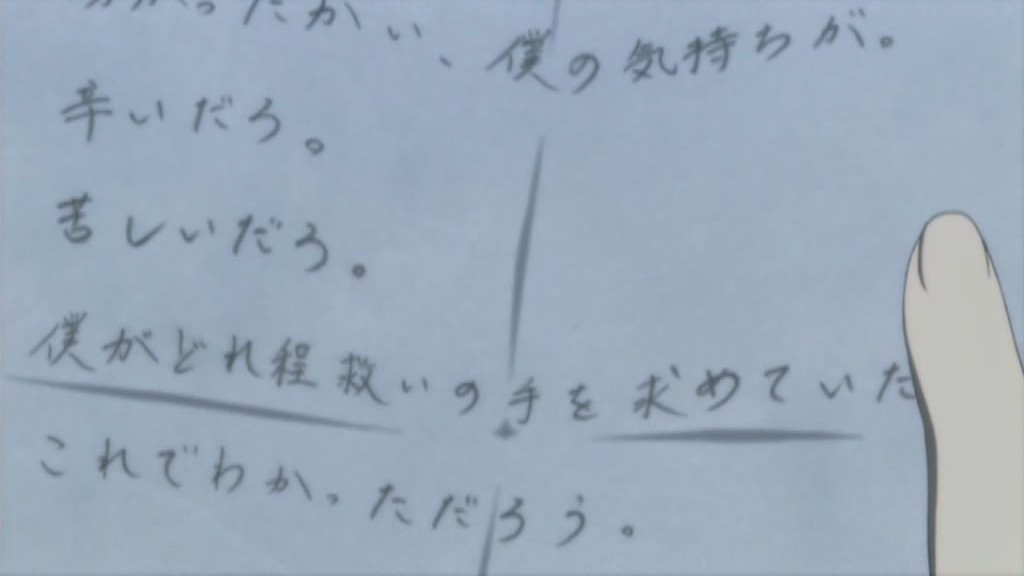 わかったかい、僕の気持ちが。
辛いだろ。
苦しいだろ。
僕がどれ程救いの手を求めていた
これでわかっただろう。